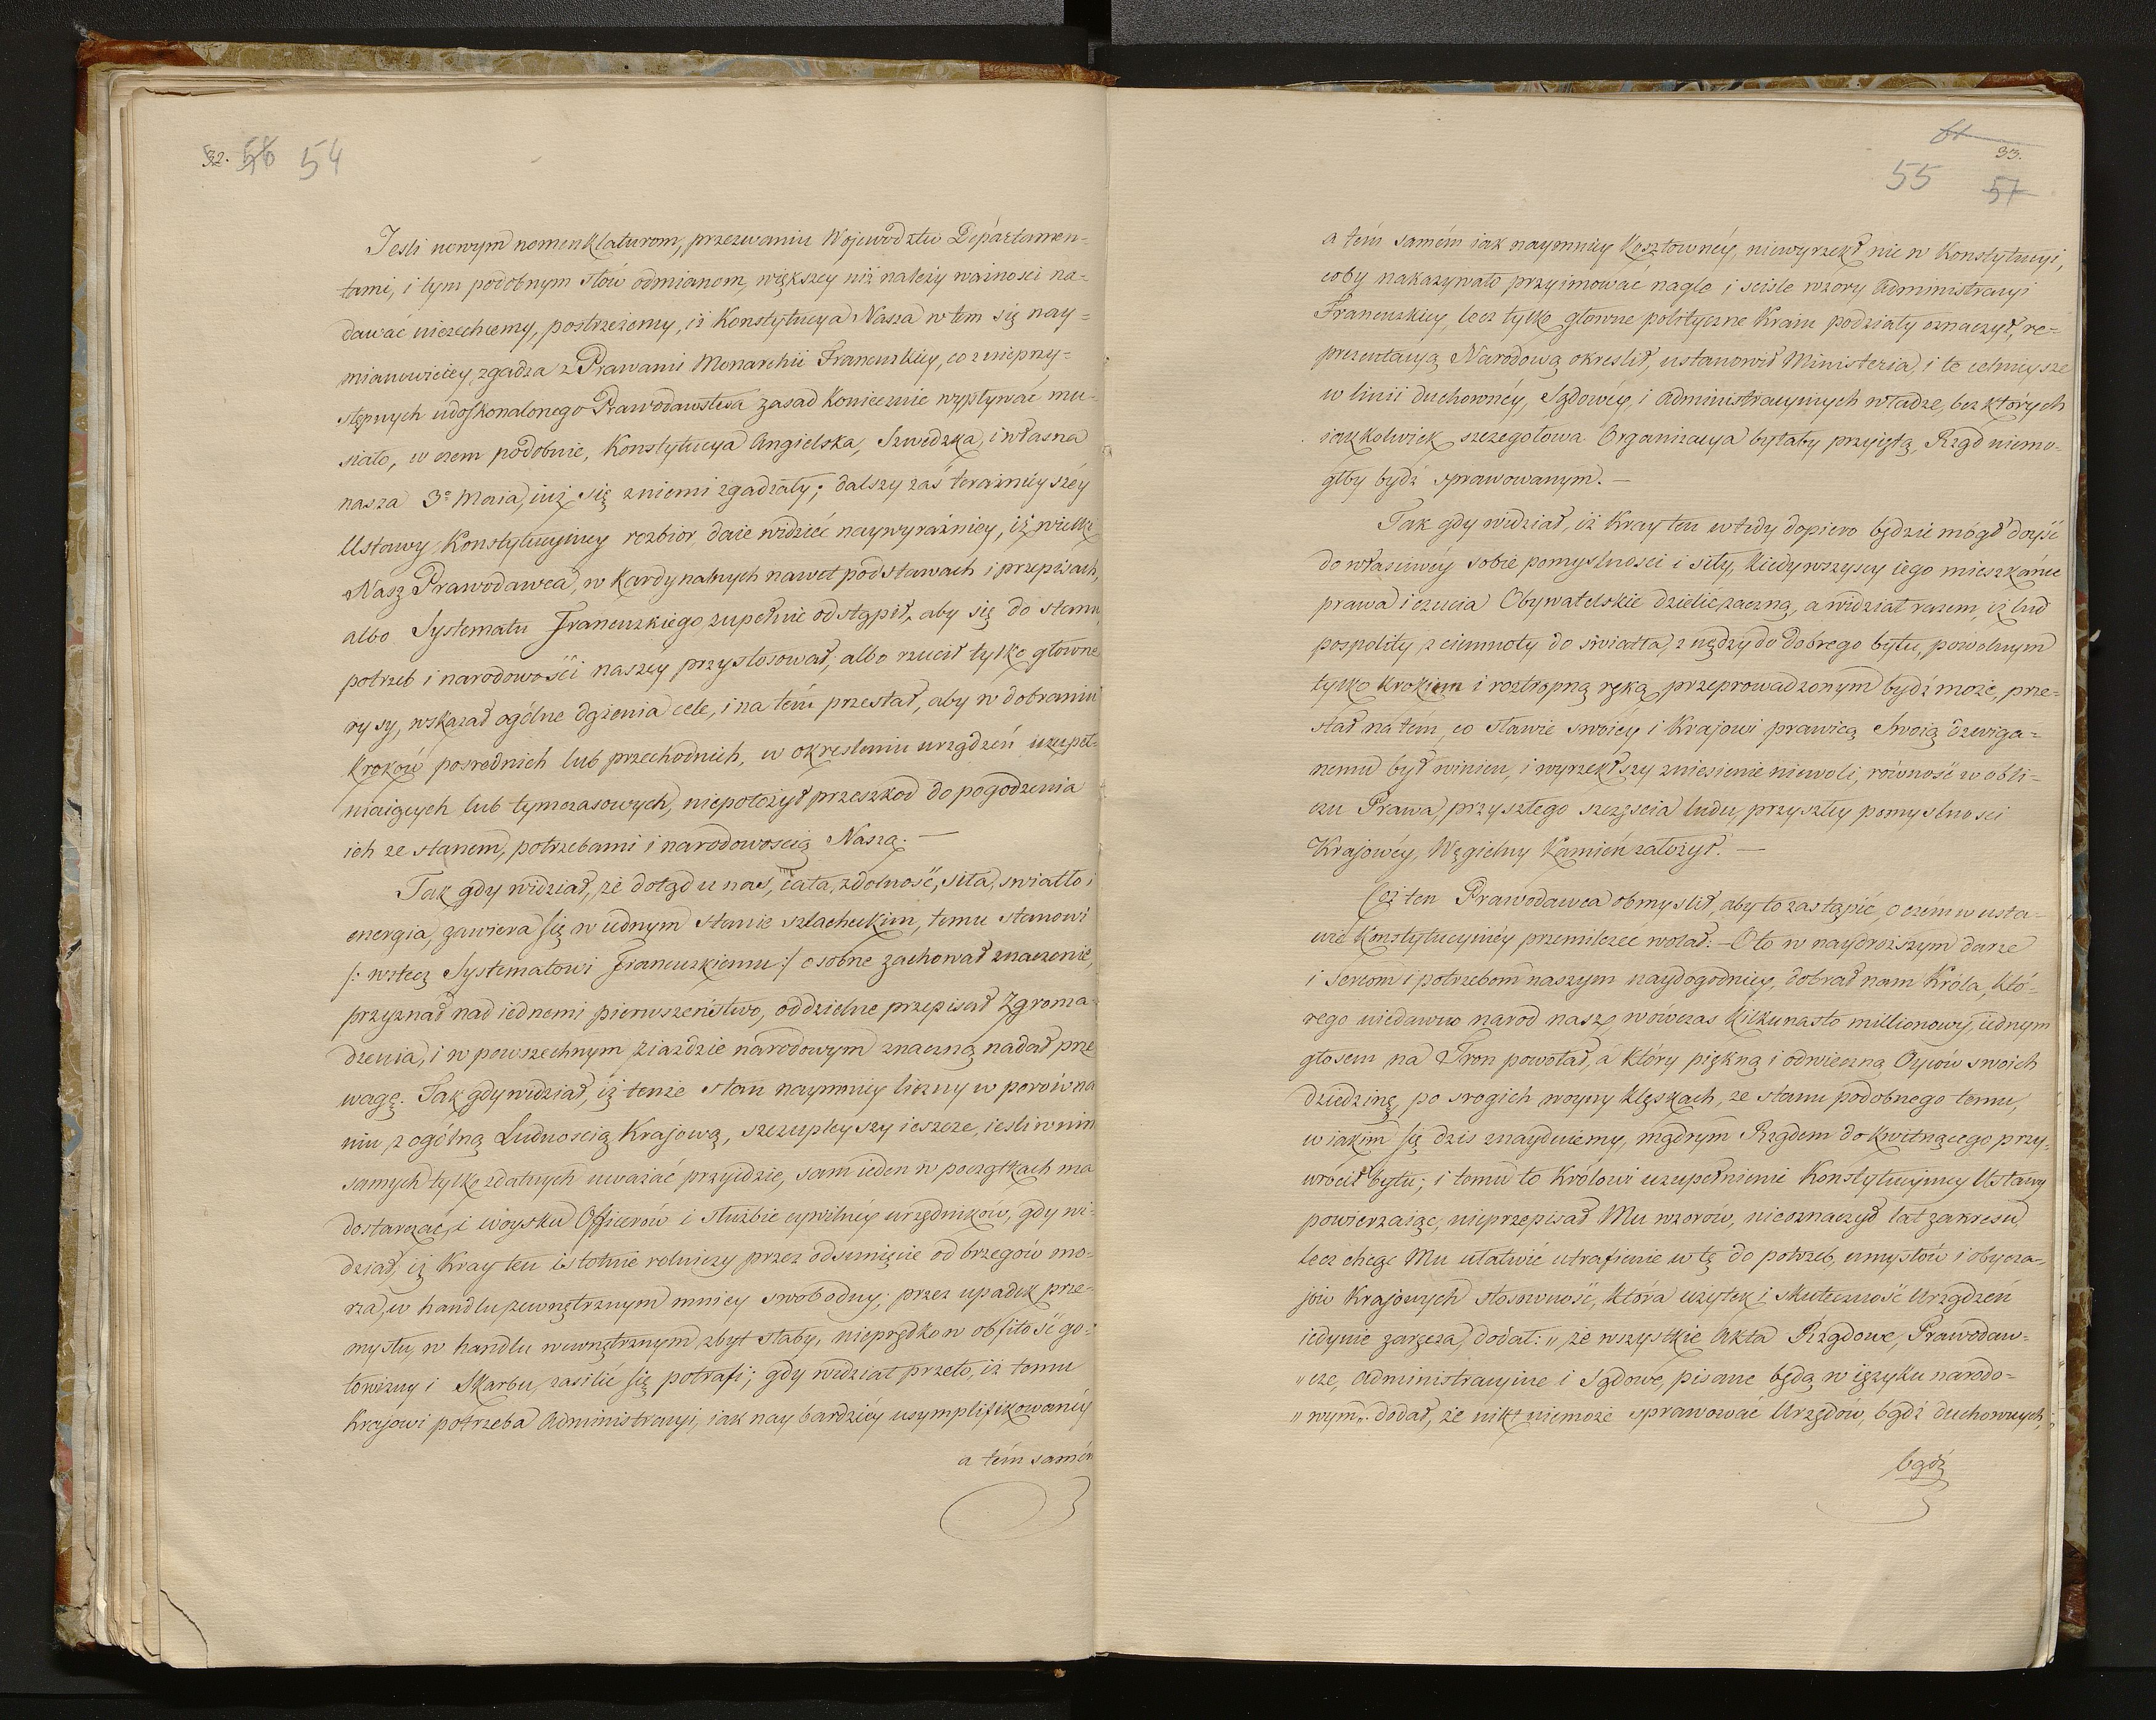 32. 56 54
Jesli nowym nomenklaturom, przezwaniu Wojewodztw Departamen-
tami, i tym podobnym słów odmianom, większey niż należy ważnosci na-
dawać niezechcemy, postrzeżemy, iż Konstytucya Nasza w tem się nay-
mianowiciey zgadza z Prawami Monarchii Francuzkiey, co z nieprzy-
stępnych udoskonalonego Prawodawstwa zasad koniecznie wypływać mu-
siało, w czem podobnie, Konstytucya Angielska, Szwedzka, i własna
nasza 3º Maia, iuż się z niemi zgadzały; dalszy zaś teraznieyszéy
Ustawy Konstytucyiney rozbior, daie widzieć naywyraźniey, iż wielki
Nasz Prawodawca, w kardynalnych nawet podstawach i przepisach,
albo Systematu Francuzkiego zupełnie odstąpił, aby się do stanu,
potrzeb i narodowości naszey przystosował; albo rzucił tylko główne
rysy, wskazał ogólne dążenia cele, i na tém przestał, aby w dobraniu
kroków posrednich lub przechodnich, w okresleniu urządzeń uzupeł-
niaiących lub tymczasowych, niepołożył przeszkod do pogodzenia
ich ze stanem, potrzebami i narodowoscią Naszą. —
Tak gdy widział, że dotąd u nas, cała, zdolność, siła, swiatło i
energia, zawiera się w iednym stanie szlacheckim, temu stanowi
/: wstecz Systematowi Francuzkiemu :/ osobne zachował znaczenie,
przyznał nad iednemi pierwszeństwo, oddzielne przepisał Zgroma-
dzenia, i w powszechnym ziazdzie narodowym znaczną nadał prze
wagę. Tak gdy widział, iż tenże stan naymniey liczny w porówna
niu z ogólną Ludnoscią Krajową, szczupleyszy ieszcze, iesli w nim
samych tylko zdatnych uważać przyidzie, sam ieden w początkach ma
dostarczać, i woysku Officerów i służbie cywilnéy urzędników, gdy wi-
dział, iż Kray ten istotnie rolniczy przez odsunięcie od brzegów mo-
rza, w handlu zewnętrznym mniey swobodny; przez upadek prze-
mysłu, w handlu wewnętrznym zbyt słaby, nieprędko w obfitość go-
towizny i Skarbu zasilić się potrafi; gdy widział przeto, iż temu
Krajowi potrzeba Administracyi, iak naybardziéy usymplifikowanéy
a tém samém
61
33.
55 57
a tém samém iak naymniey kosztownéy, niewyrzekł nic w Konstytucyi,
coby nakazywało przyimować nagle i scisle wzory Administracyi
Francuzkiey, lecz tylko głowne polityczne Kraiu podziały oznaczył, re-
prezentacyą Narodową okreslił, ustanowił Ministeria, i te celnieysze
w linii duchownéy, Sądowéy, i Administracyinych władze, bez których
iażkolwiek szczegołowa Organizacya byłaby przyiętą, Rząd niemo-
głby bydź sprawowanym. —
Tak gdy widział, iż Kray ten wtedy dopiero będzie mógł doyść
do własciwéy sobie pomyslnosci i siły, kiedy wszyscy iego mieszkańce
prawa i czucia Obywatelskie dzielić zaczną, a widział razem, iż lud
pospolity z ciemnoty do światła, z nędzy do dobrego bytu, powolnym
tylko krokiem i roztropną ręką przeprowadzonym bydź może, prze-
stał na tem, co sławie swoiey i Krajowi prawicą Swoią dzwiga-
nemu był winien, i wyrzekłszy zniesienie niewoli, równość w obli-
czu Prawa, przyszłego szczęscia ludu, przyszłey pomyslnosci
Krajowéy, Węgielny Kamień założył. —
Cóż ten Prawodawca obmyslił, aby to zastąpić, o czém w usta-
wie Konstytucyinéy przemilczeć wolał: — Oto w naydroższym darze
i sercom i potrzebom naszym naydogodniey, dobrał nam Króla, któ-
rego niedawno narod nasz, wówczas kilkunasto millionowy, iednym
głosem na Tron powołał, a który piękną i odwieczną Oyców swoich
dziedzinę, po srogich woyny klęskach, ze stanu podobnego temu,
w iakim się dziś znayduiemy, mądrym Rządem do kwitnącego przy-
wrócił bytu; i temu to Królowi uzupełnienie Konstytucyiney Ustawy
powierzaiąc, nieprzepisał Mu wzorów, nieoznaczył lat zakresu,
lecz chcąc Mu ułatwić utrafienie w tę do potrzeb, umysłów i obycza-
jów Krajowych stosowność, która użytek i skuteczność Urządzeń
iedynie zaręcza, dodał: „że wszystkie Akta Rządowe, Prawodaw-
„cze, Administracyine i Sądowe, pisane będą w ięzyku narodo-
„wym„ dodał, że nikt niemoże sprawować Urzędów, bądź duchownych,
bądź